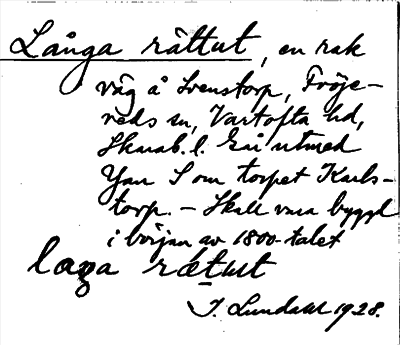 Långa rättut, en rak
väg å Svenstorp, Fröje-
reds sn, Vartofta hd,
Skarab. l. Går utmed
Yan S om torpet Karls-
torp. – Skall vara byggd
i början av 1800-talet
laŋa rætut
J. Lundahl 1928.